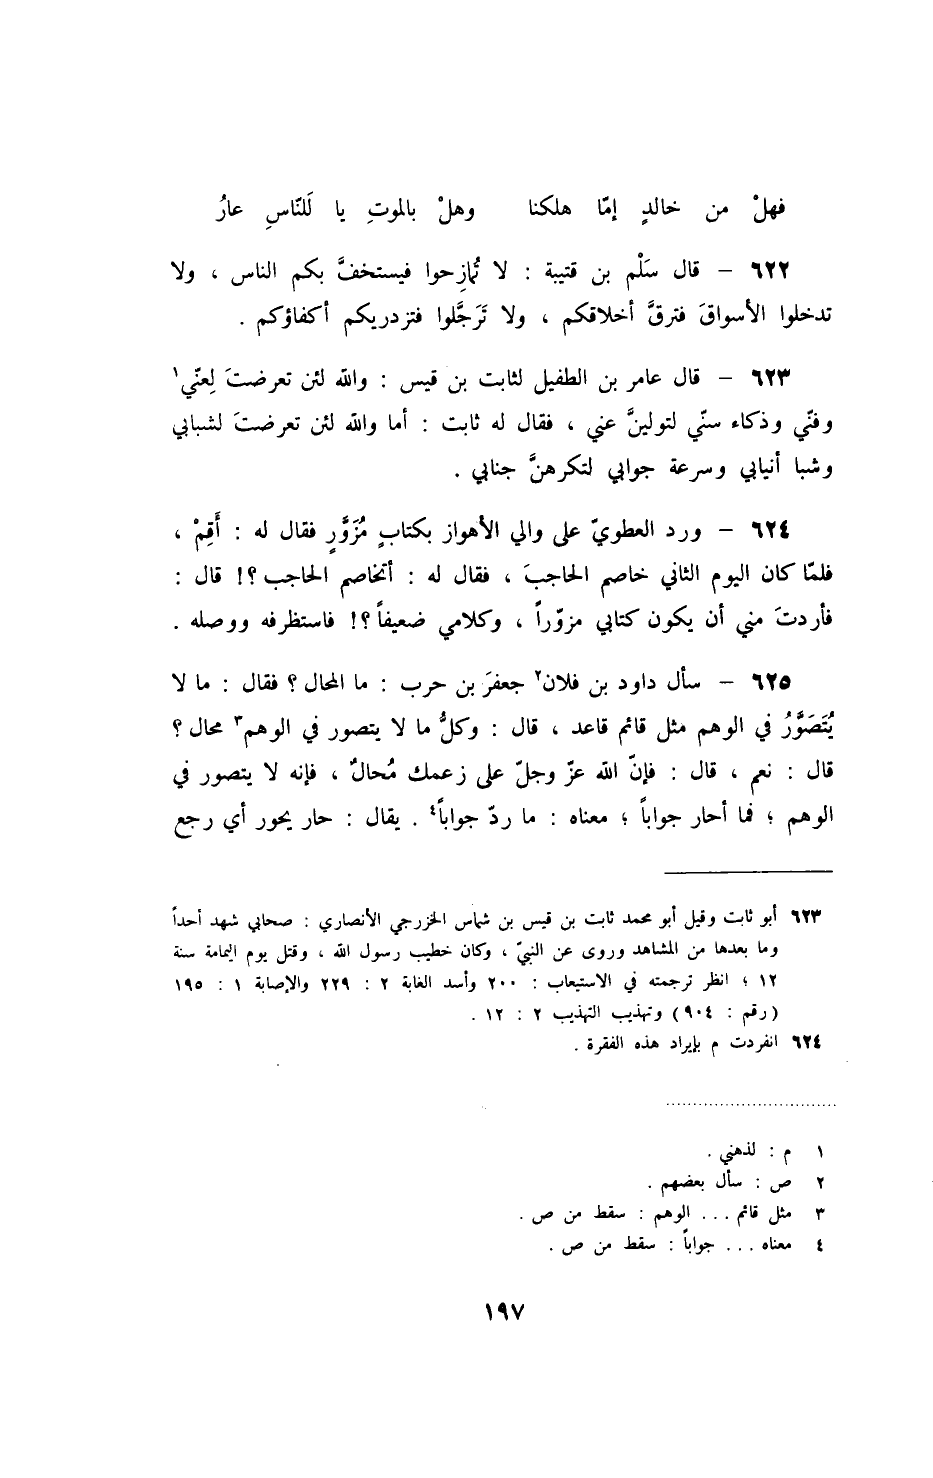 فهلْ من خالدٍ إمّا هلكنا وهلْ بالموتِ يا لَلنّاسِ عارُ
٦٢٢ – قال سَلْم بن قتيبة : لا تُمازِحوا فيستخفَّ بكم الناس ، ولا
تدخلوا الأسواقَ فترقَّ أخلاقكم ، ولا تَرَجَّلوا فتزدريكم أكفاؤكم .
٦٢٣ – قال عامر بن الطفيل لثابت بن قيس : والله لئن تعرضتَ لِعنّي١
وفنّي وذكاء سنّي لتولينَّ عني ، فقال له ثابت : أما والله لئن تعرضتَ لشبابي
وشبا أنيابي وسرعة جوابي لتكرهنَّ جنابي .
٦٢٤ – ورد العطويّ على والي الأهواز بكتابٍ مُزَوَّرٍ فقال له : أَقِمْ ،
فلمّا كان اليوم الثاني خاصم الحاجبَ ، فقال له : أتخاصم الحاجب ؟! قال :
فأردتَ مني أن يكون كتابي مزوّراً ، وكلامي ضعيفاً ؟! فاستظرفه ووصله .
٦٢٥ – سأل داود بن فلان٢ جعفرَ بن حرب : ما المحال ؟ فقال : ما لا
يُتَصَوَّرُ في الوهم مثل قائم قاعد ، قال : وكلُّ ما لا يتصور في الوهم٣ محال ؟
قال : نعم ، قال : فإنّ الله عزّ وجلّ على زعمك مُحالٌ ، فإنه لا يتصور في
الوهم ؛ فما أحار جواباً ؛ معناه : ما ردّ جواباً٤ . يقال : حار يحور أي رجع
٦٢٣ أبو ثابت وقيل أبو محمد ثابت بن قيس بن شماس الخزرجي الأنصاري : صحابي شهد أحداً
وما بعدها من المشاهد وروى عن النبيّ ، وكان خطيب رسول الله ، وقتل يوم اليمامة سنة
١٢ ؛ انظر ترجمته في الاستيعاب : ٢٠٠ وأسد الغابة ٢ : ٢٢٩ والإصابة ١ : ١٩٥
(رقم : ٩٠٤) وتهذيب التهذيب ٢ : ١٢ .
٦٢٤ انفردت م بإيراد هذه الفقرة .
١ م : لذهني .
٢ ص : سأل بعضهم .
٣ مثل قائم ... الوهم : سقط من ص .
٤ معناه ... جواباً : سقط من ص .
١٩٧